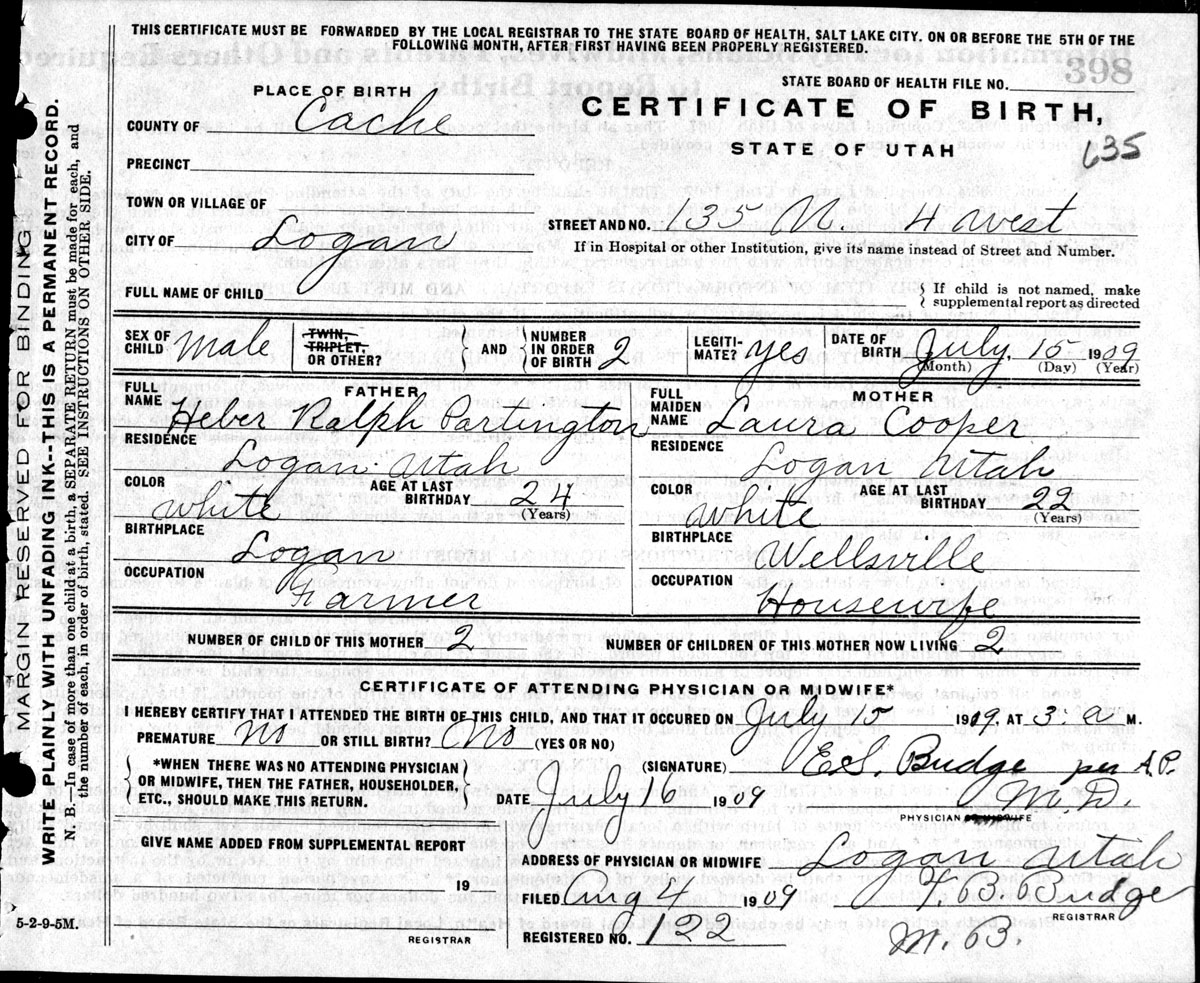 THIS CERTIFICATE MUST BE FORWARDED BY THE LOCAL REGISTRAR TO THE STATE BOARD OF HEALTH, SALT LAKE CITY. ON OR BEFORE THE 5TH OF THE
FOLLOWING MONTH, AFTER FIRST HAVING BEEN PROPERLY REGISTERED.
398
STATE BOARD OF HEALTH FILE NO.
PLACE OF BIRTH
CERTIFICATE OF BIRTH,
COUNTY OF Cache
STATE OF UTAH 635
PRECINCT
TOWN OR VILLAGE OF
STREET AND NO. 135 N 4 West
CITY OF Logan
If in Hospital or other Institution, give its name instead of Street and Number.
FULL NAME OF CHILD
If child is not named, make
supplemental report as directed
SEX OF CHILD Male
TWIN, TRIPLET, OR OTHER?
AND
NUMBER IN ORDER OF BIRTH 2
LEGITI-MATE? yes
DATE OF BIRTH July 15 1909
(Month) (Day) (Year)
FATHER
FULL NAME Heber Ralph Partington
RESIDENCE
Logan Utah
COLOR white
AGE AT LAST BIRTHDAY 24 (Years)
BIRTHPLACE Logan
OCCUPATION Farmer
MOTHER
FULL MAIDEN NAME Laura Cooper
RESIDENCE
Logan Utah
COLOR white
AGE AT LAST BIRTHDAY 22 (Years)
BIRTHPLACE Wellsville
OCCUPATION Housewife
NUMBER OF CHILD OF THIS MOTHER 2 NUMBER OF CHILDREN OF THIS MOTHER NOW LIVING 2
CERTIFICATE OF ATTENDING PHYSICIAN OR MIDWIFE*
I HEREBY CERTIFY THAT I ATTENDED THE BIRTH OF THIS CHILD, AND THAT IT OCCURED ON July 15 1909. AT 3 a M.
PREMATURE No OR STILL BIRTH? No (YES OR NO)
*WHEN THERE WAS NO ATTENDING PHYSICIAN
OR MIDWIFE, THEN THE FATHER, HOUSEHOLDER,
ETC., SHOULD MAKE THIS RETURN.
(SIGNATURE) E.S. Budge per A.P.
DATE July 16 1909
M.D.
PHYSICIAN OR MIDWIFE
GIVE NAME ADDED FROM SUPPLEMENTAL REPORT
19
REGISTRAR
ADDRESS OF PHYSICIAN OR MIDWIFE Logan Utah
FILED Aug 4 1909
Budge
REGISTRAR
REGISTERED NO. 122
5-2-9-5M.
MARGIN RESERVED FOR BINDING
WRITE PLAINLY WITH UNFADING INK--THIS IS A PERMANENT RECORD.
N. B.--In case of more than one child at a birth, a SEPARATE RETURN must be made for each, and
the number of each, in order of birth, stated. SEE INSTRUCTIONS ON OTHER SIDE.